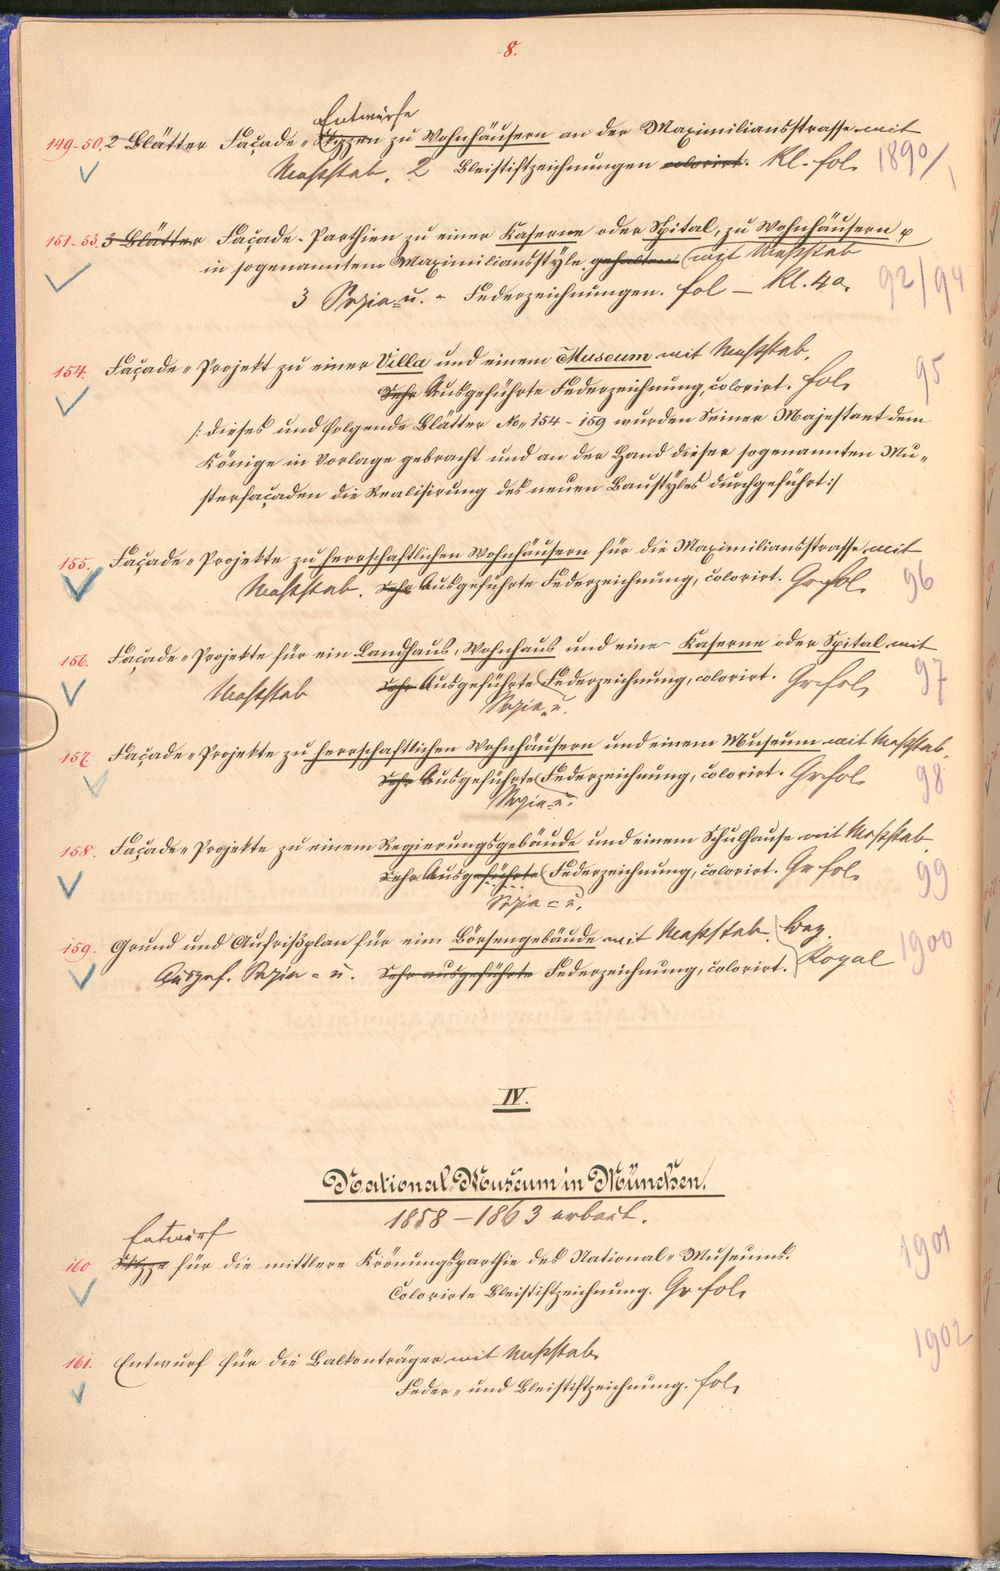 8.
Entwürfe
149-50. 2 Blätter Façade-Skizzen zu Wohnhäusern an der Maximiliansstrasse mit
Maßstab. 2 Bleistiftzeichnungen colorirt. Kl. fol. 1890/1
151-53. 3 Blätter Façade-Parthien zu einer Kaserne oder Spital, zu Wohnhäusern p
in sogenanntem Maximiliansstyle gehalten (mit Maßstab
3 Sepia u. - Federzeichnungen. fol - Kl. 4o. 92/94
154. Façade-Projekt zu einer Villa und einem Museum mit Maßstab. 95
Sehr Ausgeführte Federzeichnung, colorirt. fol.
/: Dieses und folgende Blätter No. 154-159 wurden Seiner Majestaet dem
Könige in Vorlage gebracht und an der Hand dieser sogenannten Mu-
sterfaçaden die Realisirung des neuen Baustyles durchgeführt :/
155. Façade-Projekte zu herrschaftlichen Wohnhäusern für die Maximiliansstrasse mit
Maßstab. Sehr Ausgeführte Federzeichnung, colorirt. Gr fol. 96
156. Façade-Projekte für ein Landhaus, Wohnhaus und eine Kaserne oder Spital mit
Maßstab Sehr Ausgeführte Federzeichnung, colorirt. Gr fol. 97
Sepia u.
157. Façade-Projekte zu herrschaftlichen Wohnhäusern und einem Museum mit Maßstab.
Sehr Ausgeführte Federzeichnung, colorirt. Gr fol. 98
Sepia u.
158. Façade-Projekte zu einem Regierungsgebäude und einem Schulhause mit Maßstab
Sehr Ausgeführte Federzeichnung, colorirt. Gr fol. 99
Sepia = u.
159. Grund und Aufrißplan für ein Börsengebäude mit Maßstab.
Ausgef. Sepia = u. Sehr ausgeführte Federzeichnung, colorirt. Royal 1900
IV.
National-Museum in München.
1858-1863 erbaut.
Entwurf
160 Skizze für die mittlere Krönungsparthie des National-Museums. 1901
Colorirte Bleistiftzeichnung. Gr fol.
161. Entwurf für die Balkonträger mit Maßstab 1902
Feder- und Bleistiftzeichnung. fol.